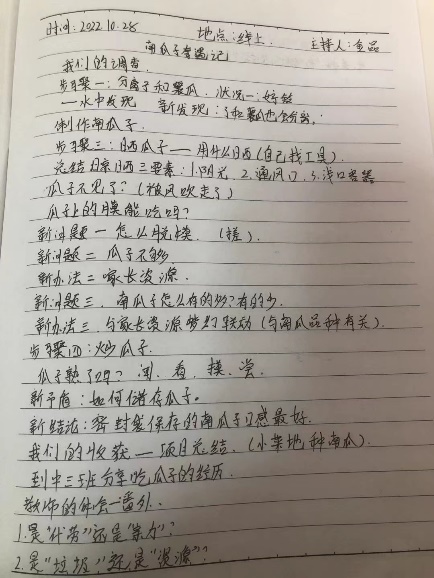 时间:2022.10.28 地点:线上. 主持人:金晶
南瓜子奇遇记
我们的调查
步骤一:分离子和囊瓜. 状况一:好
一水中发现 新发现:子和囊瓜也会分离,
制作南瓜子.
步骤三:日晒瓜子——用什么日西(自己找工具).
总结日末日晒三要素:1.阳光. 2.通风口. 3.浅口容器
瓜子不见了?(被风吹走了)
瓜子上的膜能吃吗?
新问题一 怎么脱膜. (搓).
新问题二 瓜子不够
新办法二 家长资源.
新问题三. 南瓜子怎么有的多?有的少.
新办法三. 与家长资源梦幻联动(与南瓜品种有关).
步骤四:炒瓜子.
瓜子熟了吗? 闻. 看. 摸. 尝.
新矛盾:如何储存瓜子。
新结论:密封袋保存的南瓜子口感最好.
我们的收获 — 项目总结.(小菜地种南瓜).
到中三班分享吃瓜子的经历.
教师的体会一番外.
1.是“代劳”还是“亲力”?
2.是“垃圾”?还是“资源”?